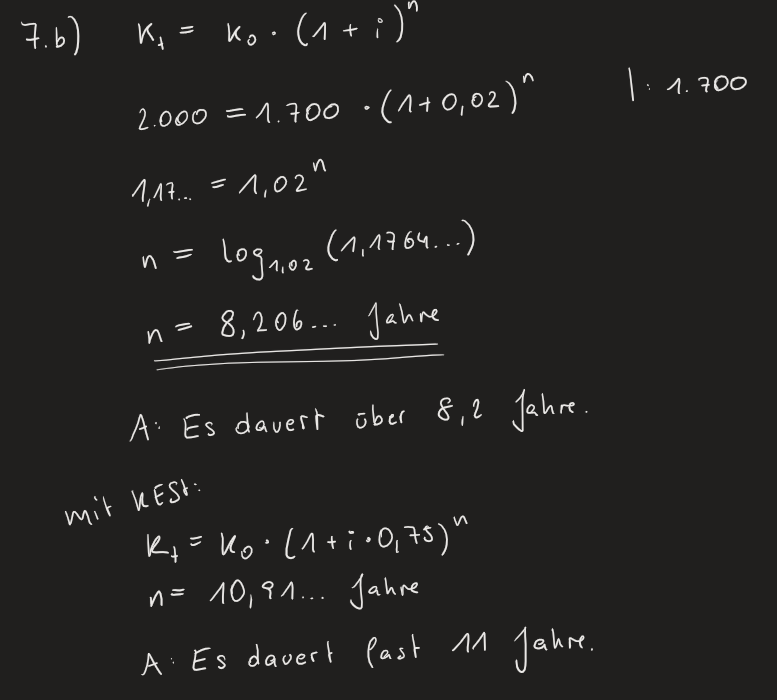 7.b) K_t = K_0 · (1 + i)^n
2.000 = 1.700 · (1+0,02)^n |: 1.700
1,17... = 1,02^n
n = log_1,02 (1,1764...)
n = 8,206... Jahre
A: Es dauert über 8,2 Jahre.
mit KESt:
K_t = K_0 · (1 + i · 0,75)^n
n = 10,91... Jahre
A: Es dauert fast 11 Jahre.